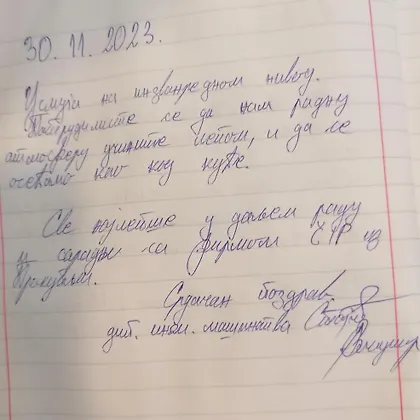 30. 11. 2023.
Услуга на ванредном нивоу.
Потрудилисте се да нам радну
атмосферу учините лепом, и да се
осећамо као код куће.
Све најлепше у даљем раду
и сарадњи са фирмом из
Срдачан поздрав
дип. инж. машинства